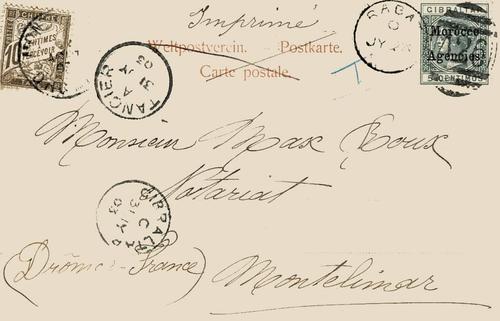 Imprimé
Weltpostverein. Postkarte.
Carte postale.
10 CENTIMES
A PERCEVOIR
RABA
JY
GIBRALTAR
Morocco
Agencies
5 CENTIMOS
TANGIER
A
31 JY
03
Monsieur Max Roux
Notariat
GIBRALTAR
C
31 JY
03
(Drôme - France)
Montelimar